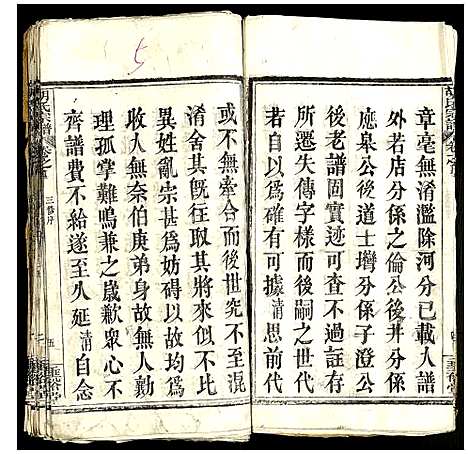 章毫無淆濫除河分已載入譜
外若店分係之倫公後井分係
應皋公後道士塆分係子澄公
後老譜固實迹可查不過註存
所遷失傳字樣而後嗣之世代
自以爲確有可據清思前代
或不無牽合而後世究不至混
淆舍其旣往取其將來似不比
異姓亂宗甚爲妨碍以故均爲
收人無奈伯庚弟身故無人勷
理孤掌難鳴兼之歲歉衆心不
齊譜費不給遂至久延清自念
胡氏宗譜
卷之首
三修序
五
5